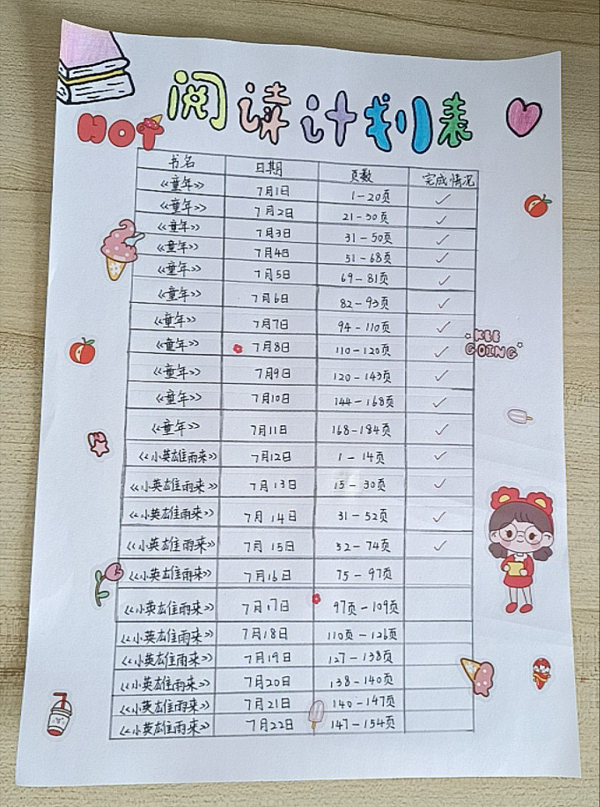 阅读计划表
HOT
书名 日期 页数 完成情况
《童年》 7月1日 1-20页 ✓
《童年》 7月2日 21-30页 ✓
《童年》 7月3日 31-50页 ✓
《童年》 7月4日 51-68页 ✓
《童年》 7月5日 69-81页 ✓
《童年》 7月6日 82-93页 ✓
《童年》 7月7日 94-110页 ✓
《童年》 7月8日 110-120页 ✓
KEE
GOING
《童年》 7月9日 120-143页 ✓
《童年》 7月10日 144-168页 ✓
《童年》 7月11日 168-184页 ✓
《小英雄雨来》 7月12日 1-14页 ✓
《小英雄雨来》 7月13日 15-30页 ✓
《小英雄雨来》 7月14日 31-52页 ✓
《小英雄雨来》 7月15日 52-74页 ✓
《小英雄雨来》 7月16日 75-97页
《小英雄雨来》 7月17日 97页-109页
《小英雄雨来》 7月18日 110页-126页
《小英雄雨来》 7月19日 127-138页
《小英雄雨来》 7月20日 138-140页
《小英雄雨来》 7月21日 140-147页
《小英雄雨来》 7月22日 147-154页